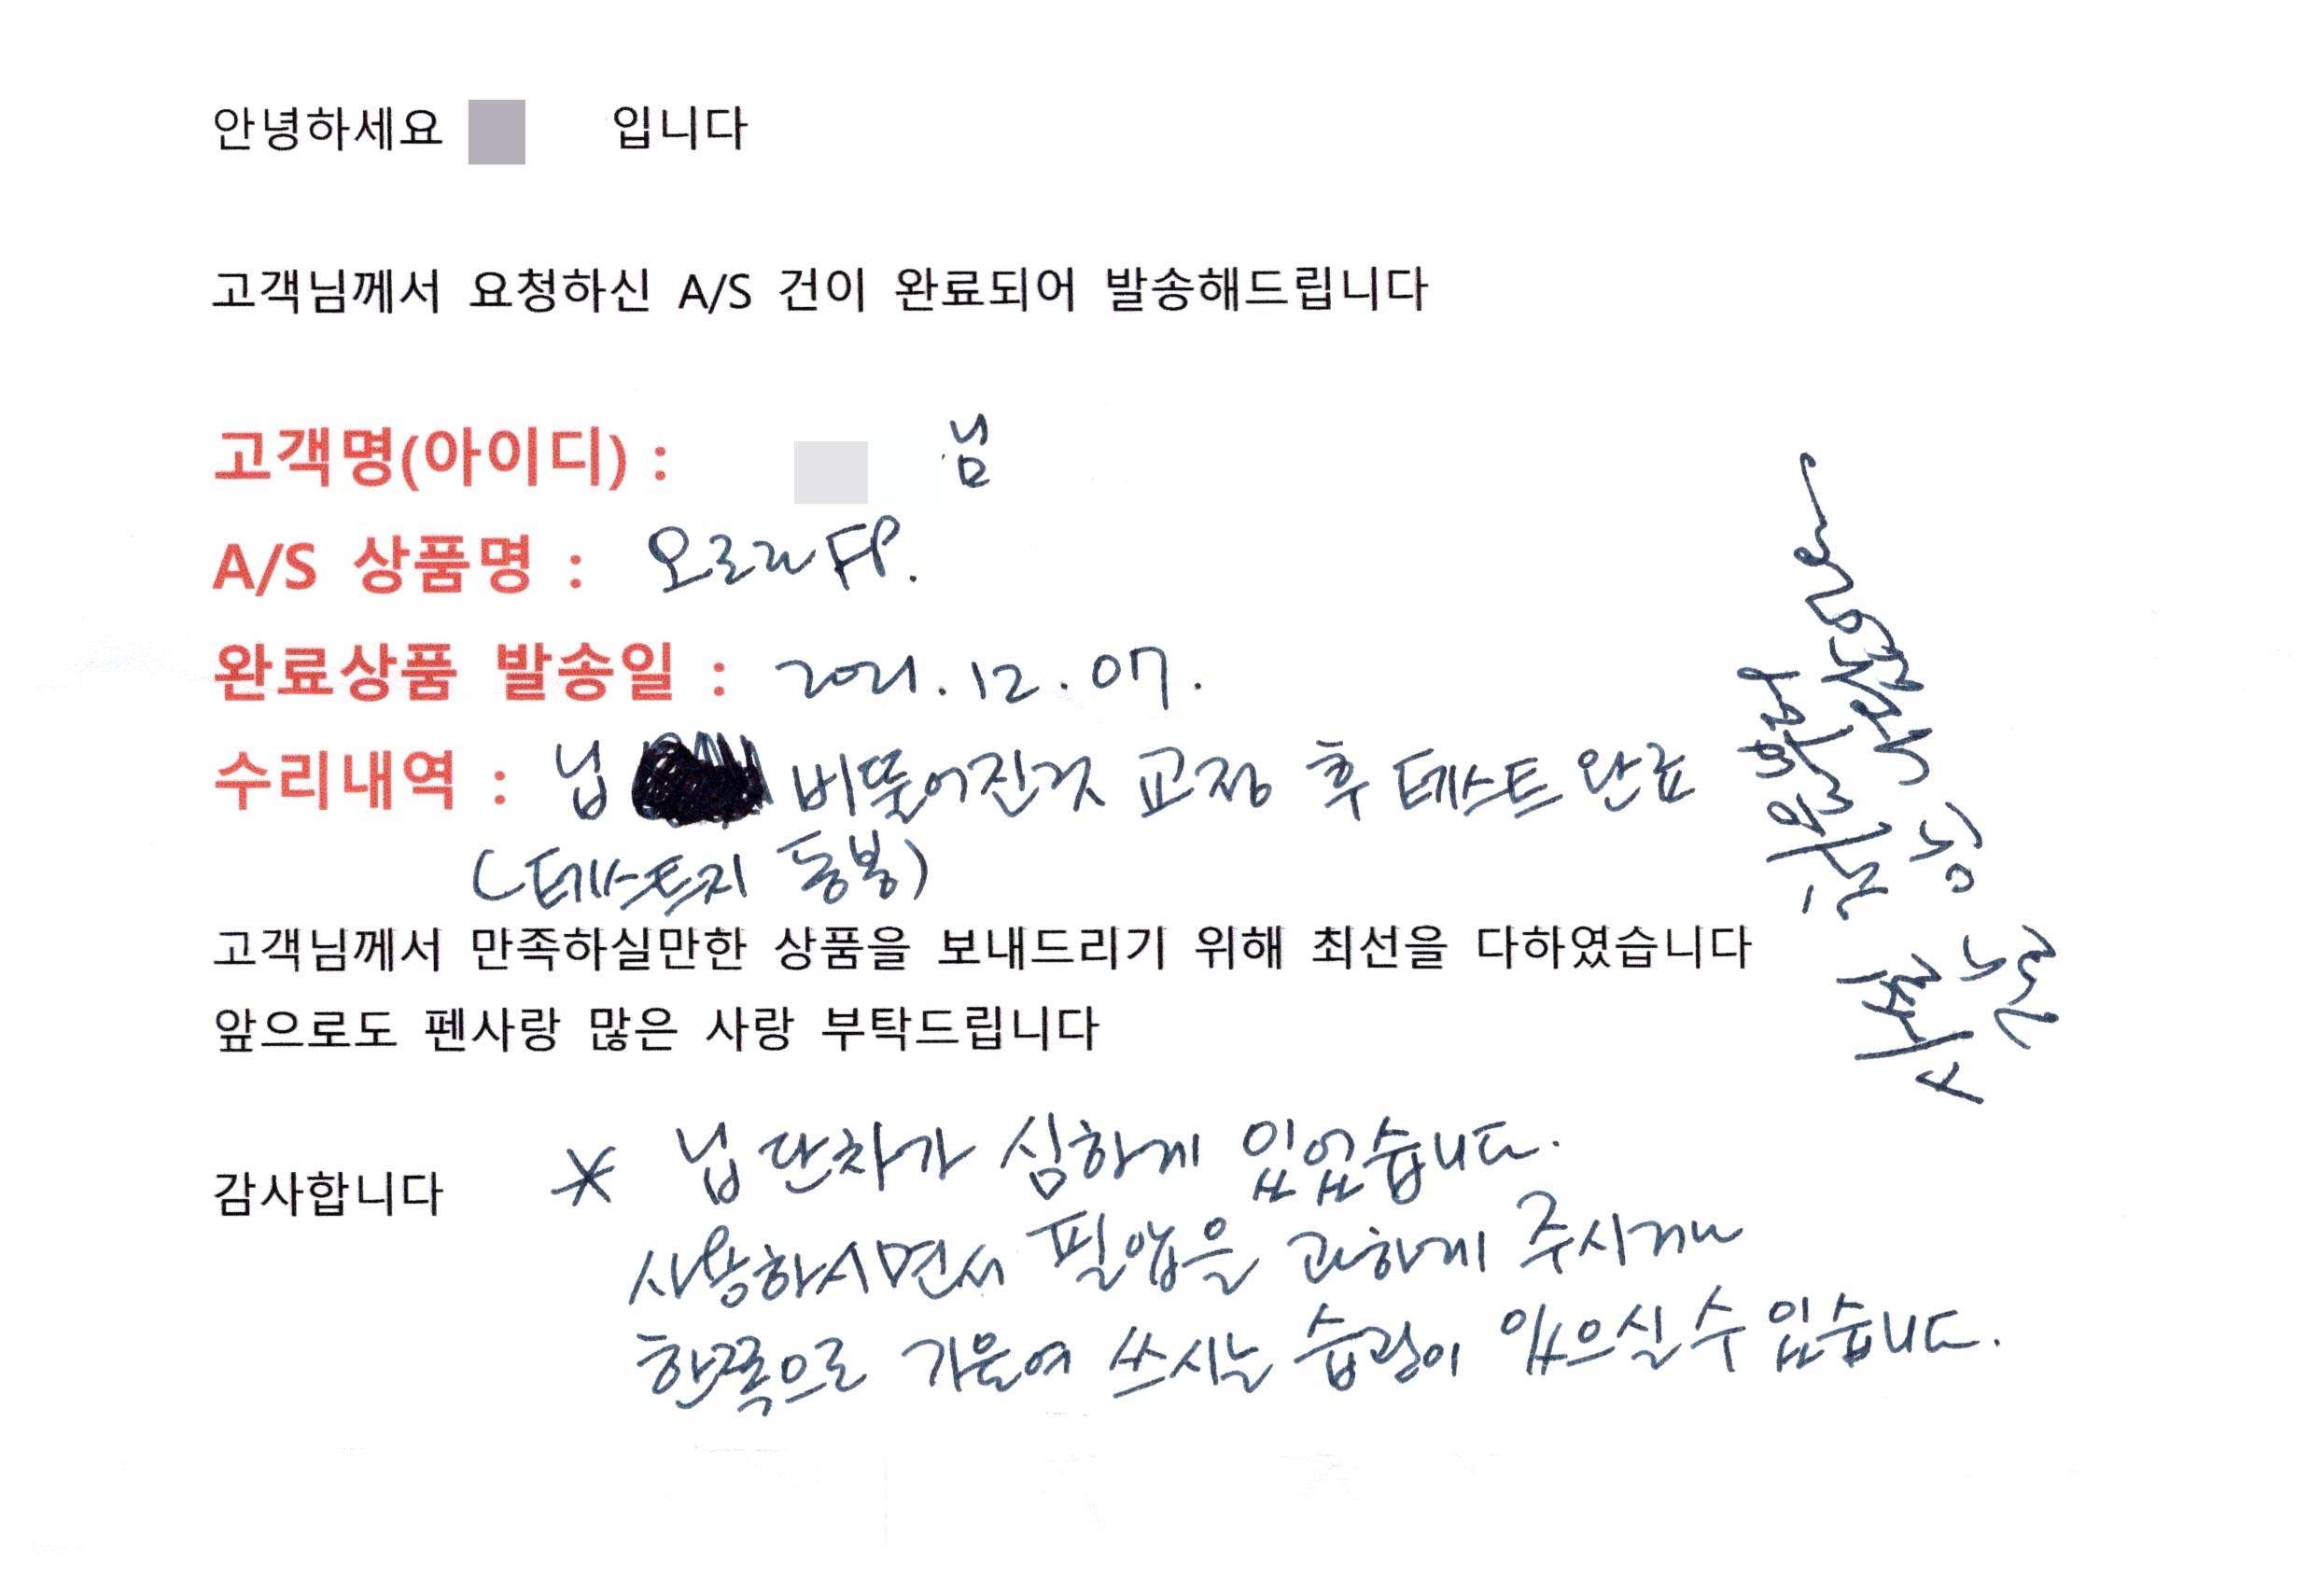 안녕하세요 입니다
고객님께서 요청하신 A/S 건이 완료되어 발송해드립니다
고객명(아이디) : 님
A/S 상품명 : 오로라 FP.
완료상품 발송일 : 2021.12.07.
수리내역 : 닙 비뚤어진것 교정 후 테스트 완료
(테스트지 동봉)
고객님께서 만족하실만한 상품을 보내드리기 위해 최선을 다하였습니다
앞으로도 펜사랑 많은 사랑 부탁드립니다
감사합니다
* 닙 단차가 심하게 있었습니다.
사용하시면서 필압을 과하게 주시거나
한쪽으로 기울여 쓰시는 습관이 있으실 수 있습니다.